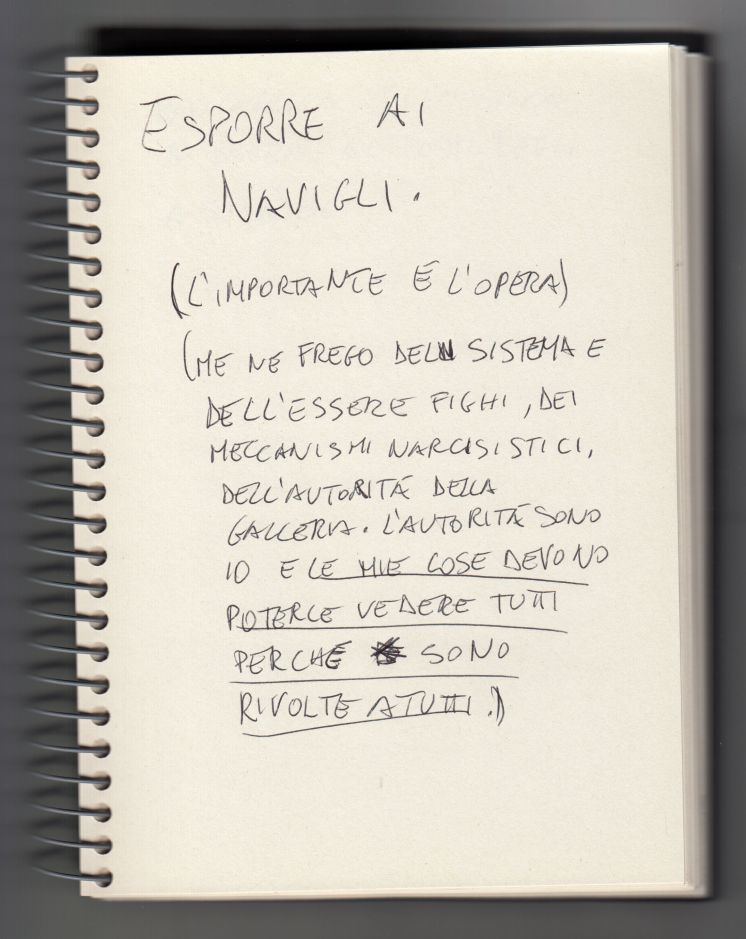 ESPORRE AI
NAVIGLI.
(L'IMPORTANTE È L'OPERA)
(ME NE FREGO DEL SISTEMA E
DELL'ESSERE FIGHI, DEI
MECCANISMI NARCISISTICI,
DELL'AUTORITÀ DELLA
GALLERIA. L'AUTORITÀ SONO
IO E LE MIE COSE DEVONO
POTERLE VEDERE TUTTI
PERCHÉ SONO
RIVOLTE A TUTTI.)